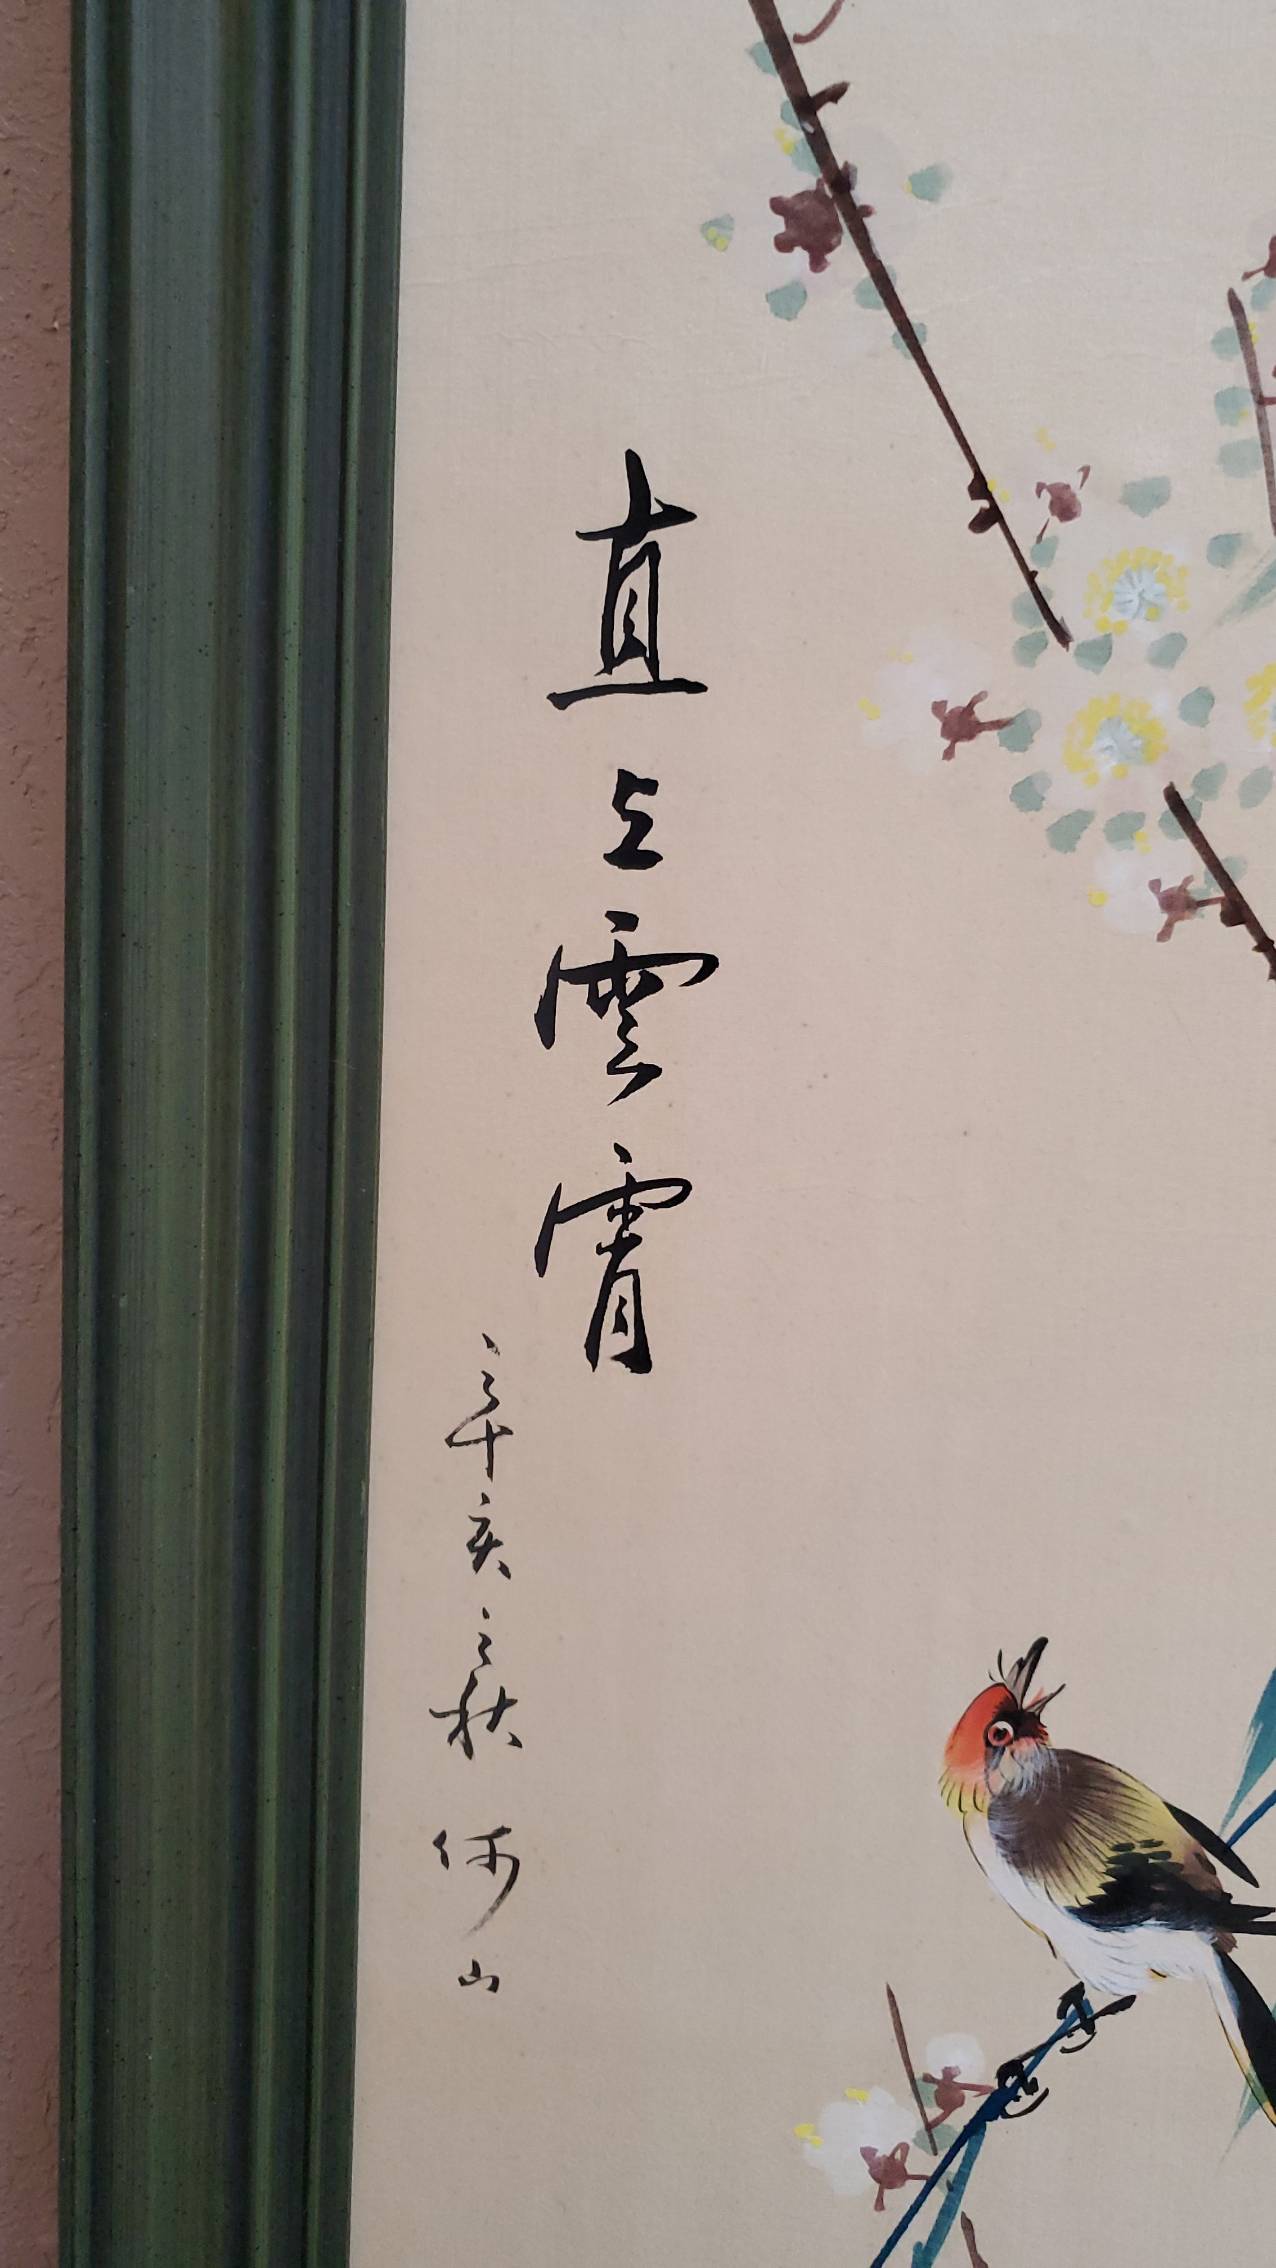 直上雲霄
辛亥之秋 何山